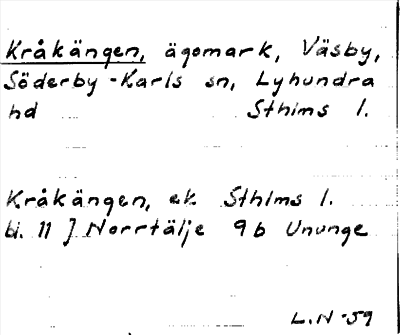 Kråkängen, ägomark, Väsby,
Söderby-Karls sn, Lyhundra
hd Sthlms l.
Kråkängen, ek Sthlms l.
bl. 11 ] Norrtälje 9b Ununge
L.N-59